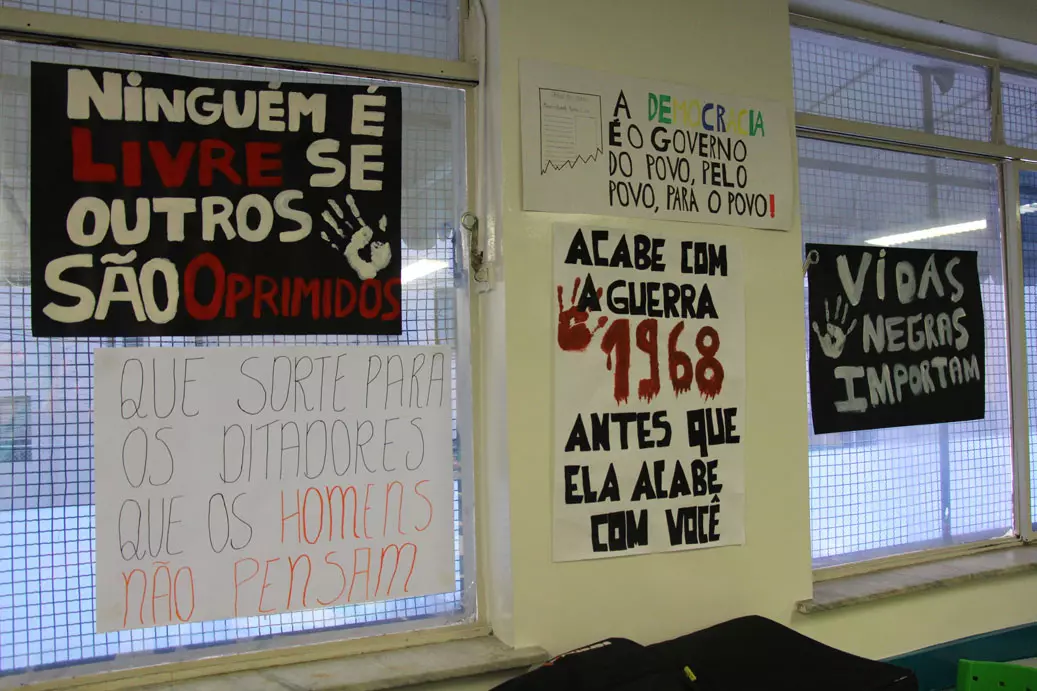 NINGUÉM É
LIVRE SE
OUTROS
SÃO OPRIMIDOS
QUE SORTE PARA
OS DITADORES
QUE OS HOMENS
NÃO PENSAM
A DEMOCRACIA
É O GOVERNO
DO POVO, PELO
POVO, PARA O POVO!
ACABE COM
A GUERRA
1968
ANTES QUE
ELA ACABE
COM VOCÊ
VIDAS
NEGRAS
IMPORTAM